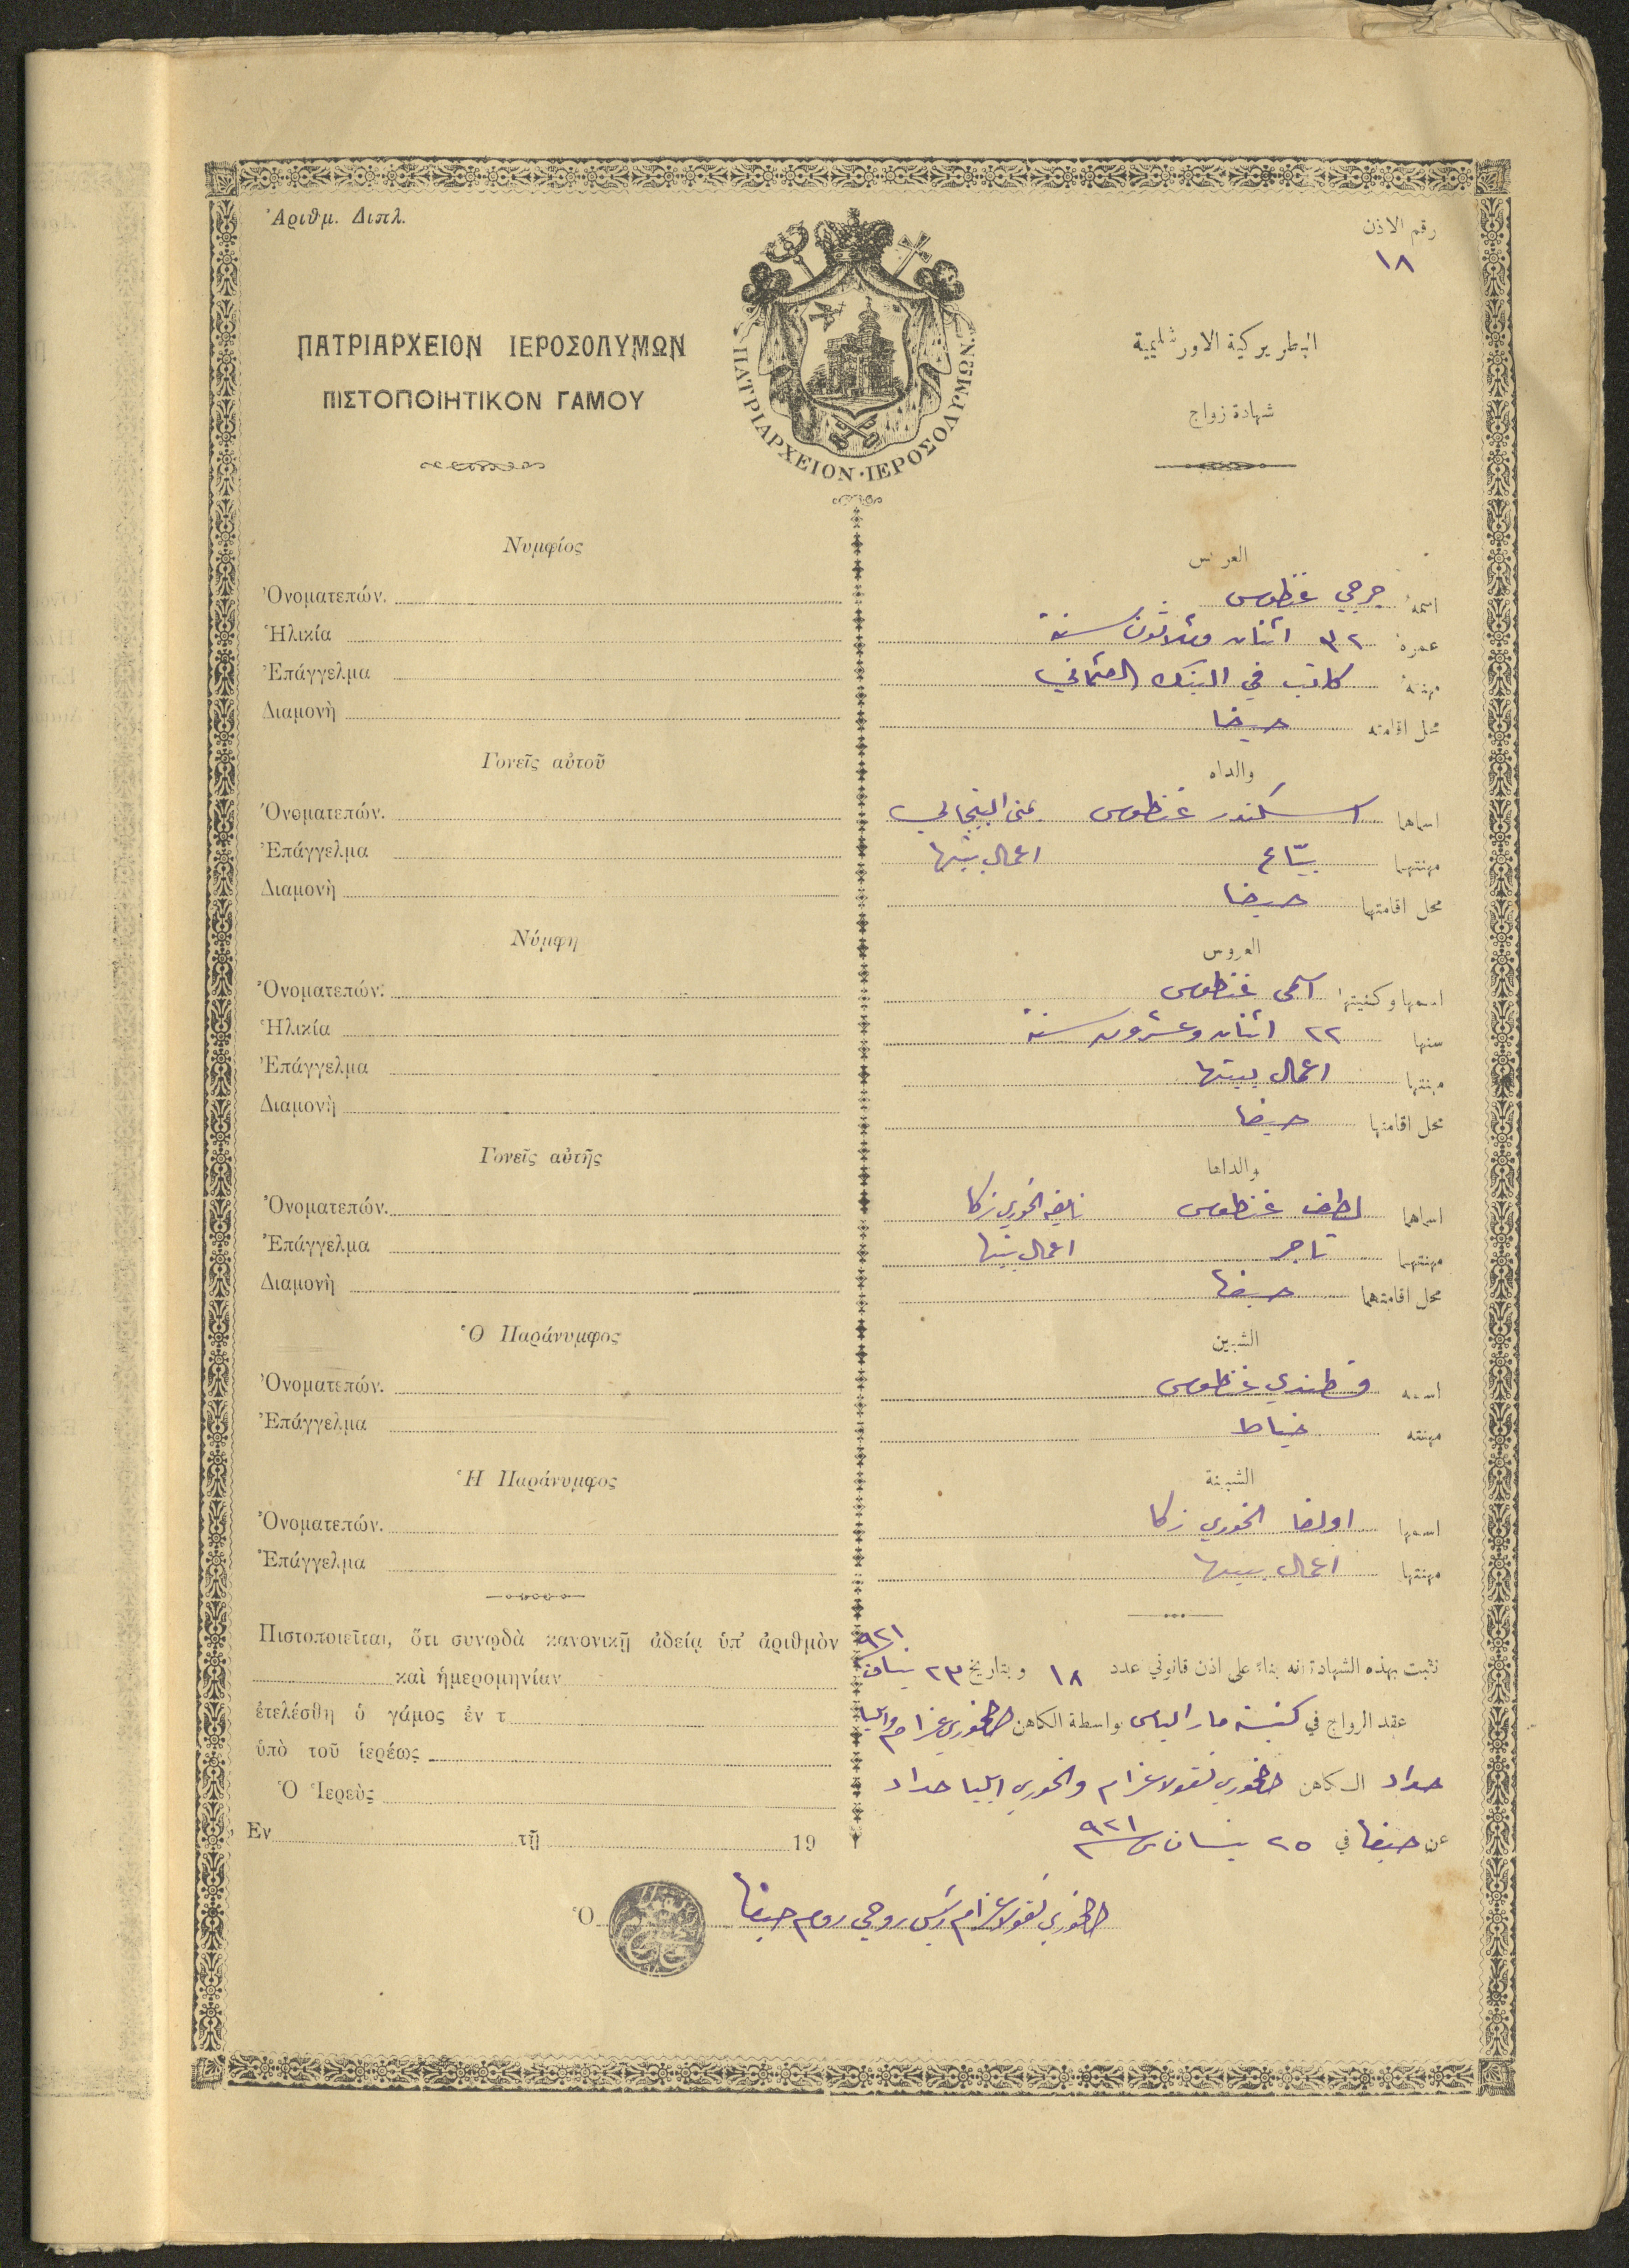 Ἀριθμ. Διπλ.
رقم الاذن
١٨
ΠΑΤΡΙΑΡΧΕΙΟΝ ΙΕΡΟΣΟΛΥΜΩΝ
ΠΙΣΤΟΠΟΙΗΤΙΚΟΝ ΓΑΜΟΥ
ΠΑΤΡΙΑΡΧΕΙΟΝ·ΙΕΡΟΣΟΛΥΜΩΝ.
البطريركية الاورشليمية
شهادة زواج
Νυμφίος
Ὀνοματεπών.
Ἡλικία
Ἐπάγγελμα
Διαμονὴ
Γονεῖς αὐτοῦ
Ὀνοματεπών.
Ἐπάγγελμα
Διαμονὴ
Νύμφη
Ὀνοματεπών.
Ἡλικία
Ἐπάγγελμα
Διαμονὴ
Γονεῖς αὐτῆς
Ὀνοματεπών.
Ἐπάγγελμα
Διαμονὴ
Ὁ Παράνυμφος
Ὀνοματεπών.
Ἐπάγγελμα
Ἡ Παράνυμφος
Ὀνοματεπών.
Ἐπάγγελμα
Πιστοποιεῖται, ὅτι συνῳδὰ κανονικῇ ἀδείᾳ ὑπ' ἀριθμὸν
καὶ ἡμερομηνίαν
ἐτελέσθη ὁ γάμος ἐν τ
ὑπὸ τοῦ ἱερέως
Ὁ Ἱερεὺς
Ἐν τῇ 19
Ὁ
العريس
اسمه جرجي غنطوس
عمره ٣٢ اثنان وثلاثون سنة
مهنته كاتب في البنك العثماني
محل اقامته حيفا
والداه
اسماهما اسكندر غنطوس
مهنتهما بيّاع اعمال بيتها
محل اقامتهما حيفا
العروس
اسمها وكنيتها اسمى غنطوس
سنها ٢٢ اثنان وعشرون سنة
مهنتها اعمال بيتها
محل اقامتها حيفا
والداها
اسماهما لطف غنطوس نايفه الخوري زكا
مهنتهما تاجر اعمال بيتها
محل اقامتهما حيفا
الشبين
اسمه قسطندي غنطوس
مهنته خياط
الشبينة
اسمها اولغا الخوري زكا
مهنتها اعمال بيتها
نثبت بهذه الشهادة انه بناءً على اذن قانوني عدد ١٨ وبتاريخ ٢٣ نيسان ٩٢١
عقد الزواج في كنيسة مار الياس بواسطة الكاهن الخوري عزام وايليا
حداد الكاهن الخوري نقولا عزام والخوري ايليا حداد
عن حيفا في ٢٥ نيسان سنة ٩٢١
الخوري نقولا عزام رئيس روحي روم حيفا